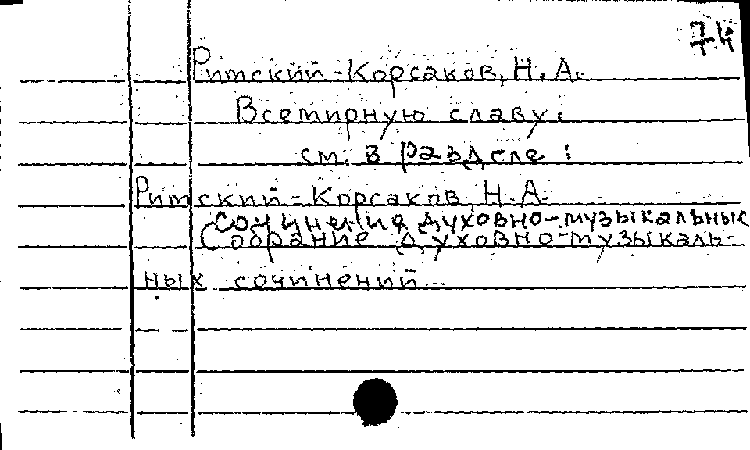 74
Римский-Корсаков, Н. А.
Всемирную славу.
см. в разделе:
Римский-Корсаков, Н. А.
Сочинение духовно-музыкальных
Собрание духовно-музыкаль-
ных сочинений